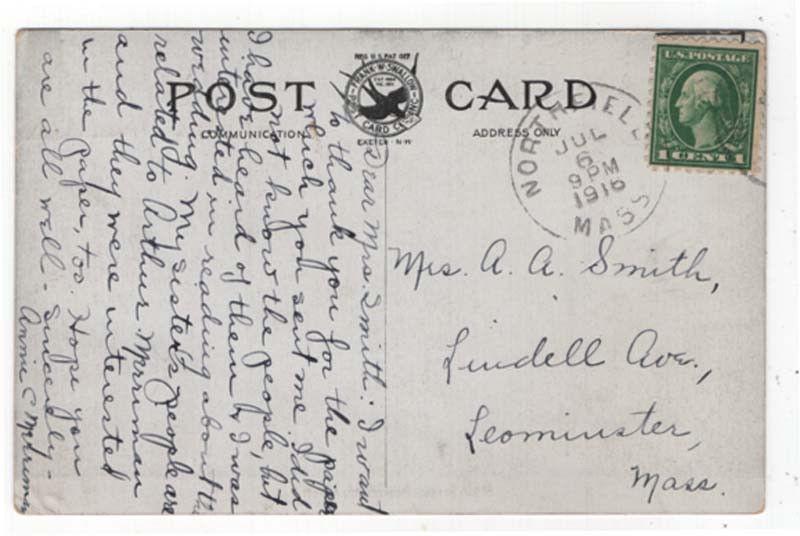 POST CARD
REG U.S. PAT OFF
FRANK W. SWALLOW
POST CARD CO., INC.
EXETER - N-H
COMMUNICATION
ADDRESS ONLY
U.S. POSTAGE
1 CENT 1
JUL
6
9 PM
1916
MASS
Dear Mrs. Smith: I want
to thank you for the paper
which you sent me. I did
not know the people, but
I have heard of them & I was
interested in reading about the
wedding. My sister's people are
related to Arthur Merriman
and they were interested
in the paper, too. Hope you
are all well - Sincerely -
Annie C Merriman
Mrs. A. A. Smith,
Lindell Ave.,
Leominster,
Mass.